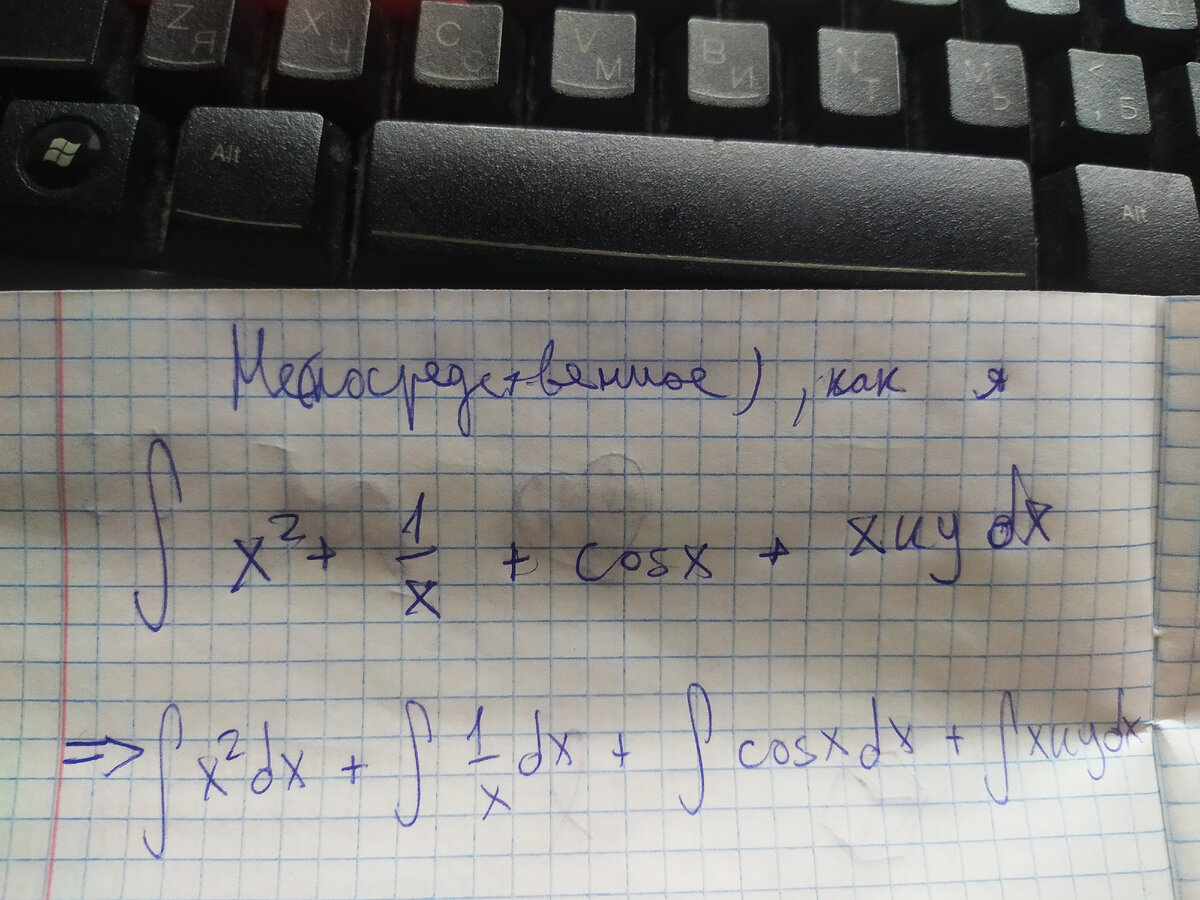 Z Я X Ч C С V М B И N Т М Ь < , Б
Alt Alt
Не(посредственное), как я
∫ x² + 1/x + cosx + xuy dx
⇒ ∫ x² dx + ∫ 1/x dx + ∫ cosx dx + ∫ xuy dx